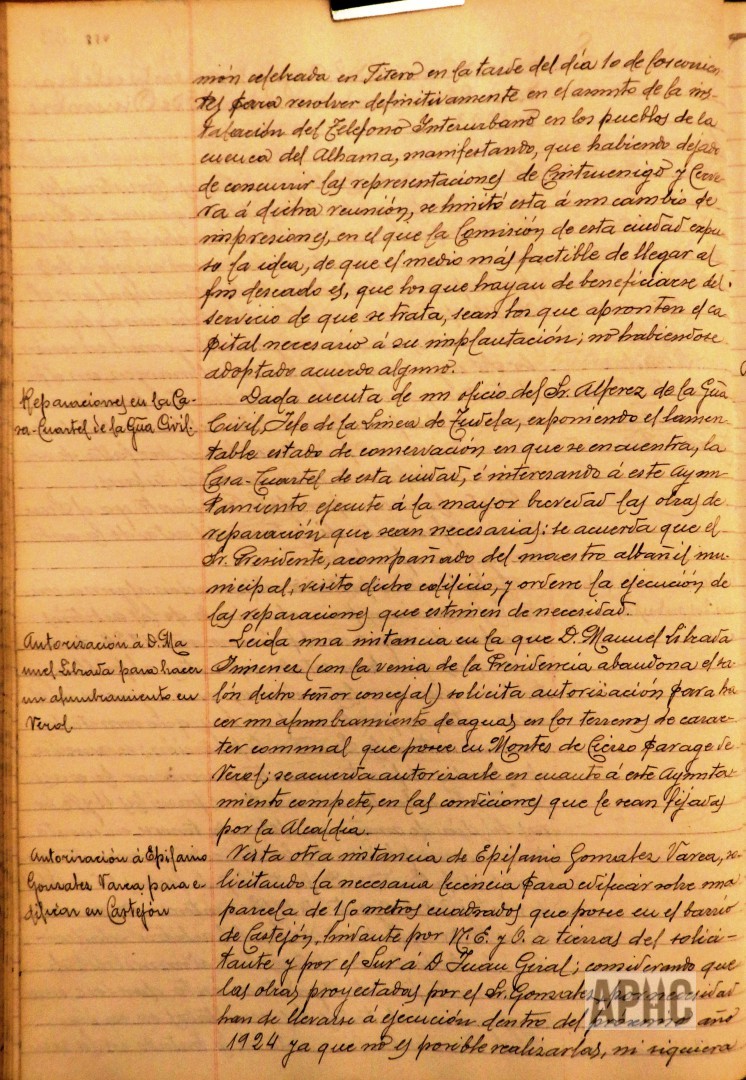 nión celebrada en Fitero en la tarde del día 10 de los corrien
tes para resolver definitivamente en el asunto de la ins-
talación del Teléfono Interurbano en los pueblos de la
cuenca del Alhama, manifestando, que habiendo dejado
de concurrir las representaciones de Cintruenigo y Cerve
ra á dicha reunión, se limitó esta á un cambio de
impresiones, en el que la Comisión de esta ciudad expu-
so la idea, de que el medio más factible de llegar al
fin deseado es, que los que hayan de beneficiarse del
servicio de que se trata, sean los que apronten el ca
pital necesario á su implantación; no habiendose
adoptado acuerdo alguno.
Reparaciones en la Ca-
sa-Cuartel de la Gũa Civil.
Dada cuenta de un oficio del Sr. Alferez de la Gũa
Civil, Jefe de la Linea de Tudela, exponiendo el lamen-
table estado de conservación en que se encuentra, la
Casa-Cuartel de esta ciudad, é interesando á este Ayun-
tamiento ejecute á la mayor brevedad las obras de
reparación que sean necesarias: se acuerda que el
Sr. Presidente, acompañado del maestro albañil mu-
nicipal, visite dicho edificio, y ordene la ejecución de
las reparaciones que estimen de necesidad.
Autorización á D. Ma
nuel Librada para hacer
un alumbramiento en
Verol
Leida una instancia en la que D. Manuel Librada
Jimenez (con la venia de la Presidencia abandona el sa-
lón dicho señor concejal) solicita autorización para ha
cer un alumbramiento de aguas en los terrenos de carac-
ter comunal que posee en Montes de Cierzo parage de
Verol; se acuerda autorizarle en cuanto á este Ayunta-
miento compete, en las condiciones que le sean fijadas
por la Alcaldía.
Autorización á Epifanio
Gonzalez Varea para e-
dificar en Castejón
Vista otra instancia de Epifanio Gonzalez Varea, so-
licitando la necesaria licencia para edificar sobre una
parcela de 150 metros cuadrados que posee en el barrio
de Castejón, lindante por N. E. y O. a tierras del solici-
tante y por el Sur á D. Juan Giral; considerando que
las obras proyectadas por el Sr. Gonzalez por necesidad
han de llevarse á ejecución dentro del proximo año
1924 ya que no es posible realizarlas, ni siquiera
APHC